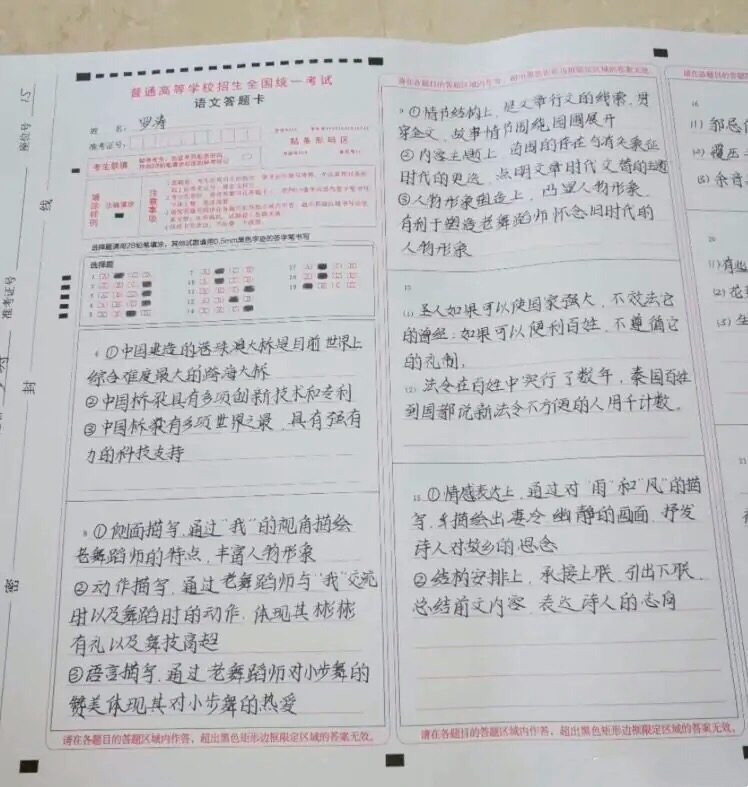 座位号 15
准考证号
线
封
密
普通高等学校招生全国统一考试
语文答题卡
姓名：罗涛
准考证号：
贴条形码区
考生禁填
填涂样例
正确填涂
注意事项
选择题请用2B铅笔填涂，其他试题请用0.5mm黑色字迹的签字笔书写
选择题
6 ①中国建造的港珠澳大桥是目前世界上
综合难度最大的跨海大桥
②中国桥梁具有多项创新技术和专利
③中国桥梁有多项世界之最，具有强有
力的科技支持
8 ①侧面描写，通过“我”的视角描绘
老舞蹈师的特点，丰富人物形象
②动作描写，通过老舞蹈师与“我”交流
时以及舞蹈时的动作，体现其彬彬
有礼以及舞技高超
③语言描写，通过老舞蹈师对小步舞的
赞美体现其对小步舞的热爱
请在各题目的答题区域内作答，超出黑色矩形边框限定区域的答案无效。
请在各题目的答题区域内作答，超出黑色矩形边框限定区域的答案无效。
9 ①情节结构上，是文章行文的线索，贯
穿全文，故事情节围绕园圃展开
②内容主题上，苗圃的存在与消失象征
时代的更迭，点明文章时代交替的主题
③人物形象塑造上，凸显人物形象，
有利于塑造老舞蹈师怀念旧时代的
人物形象
13
(1) 圣人如果可以使国家强大，不效法它
的曾经；如果可以便利百姓，不遵循它
的礼制。
(2) 法令在百姓中实行了数年，秦国百姓
到国都说新法令不方便的人用千计数。
15 ①情感表达上，通过对“雨”和“风”的描
写，描绘出凄冷幽静的画面，抒发
诗人对故乡的思念
②结构安排上，承接上联，引出下联，
总结前文内容，表达诗人的志向
请在各题目的答题区域内作答，超出黑色矩形边框限定区域的答案无效。
请在各题目的答题区域内
16
(1)
(2)
(3) 余音
20
(1) 有些
(2) 花
(3)
21